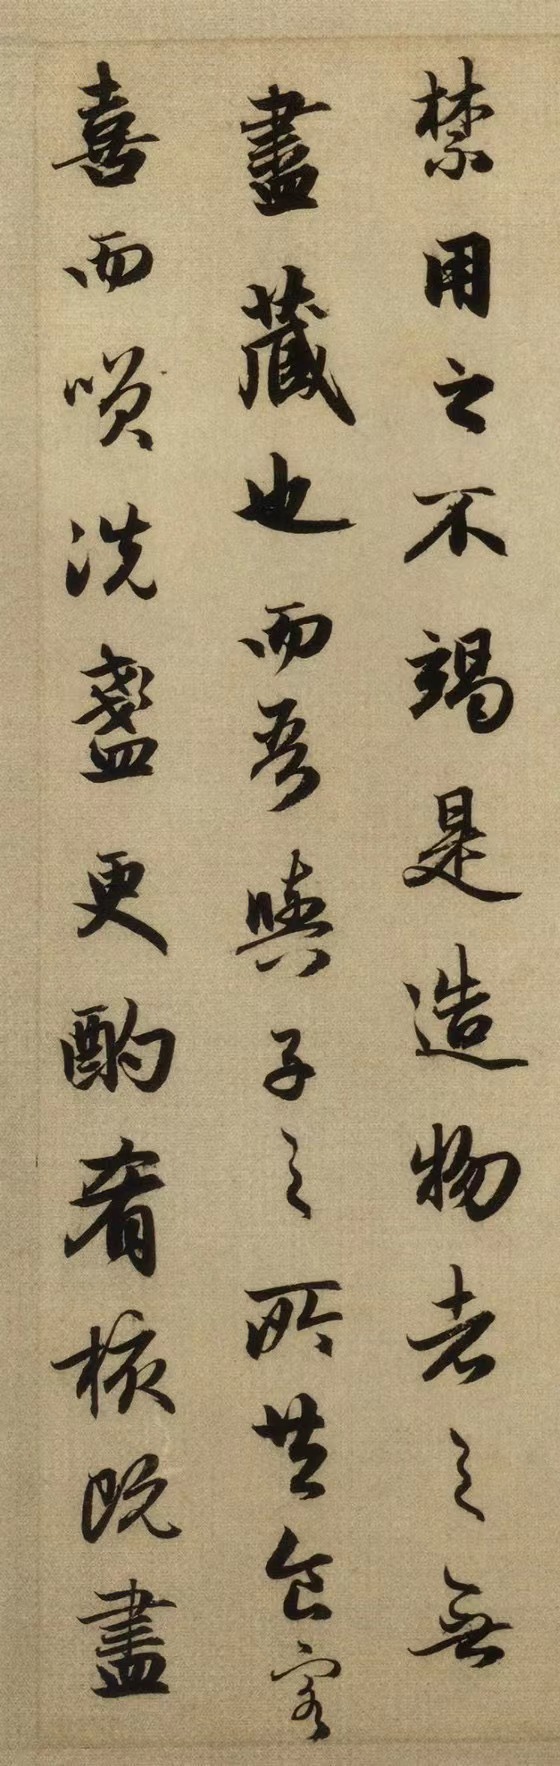 禁用之不竭是造物者之無
盡藏也而吾與子之所共食客
喜而唄洗盞更酌肴核既盡